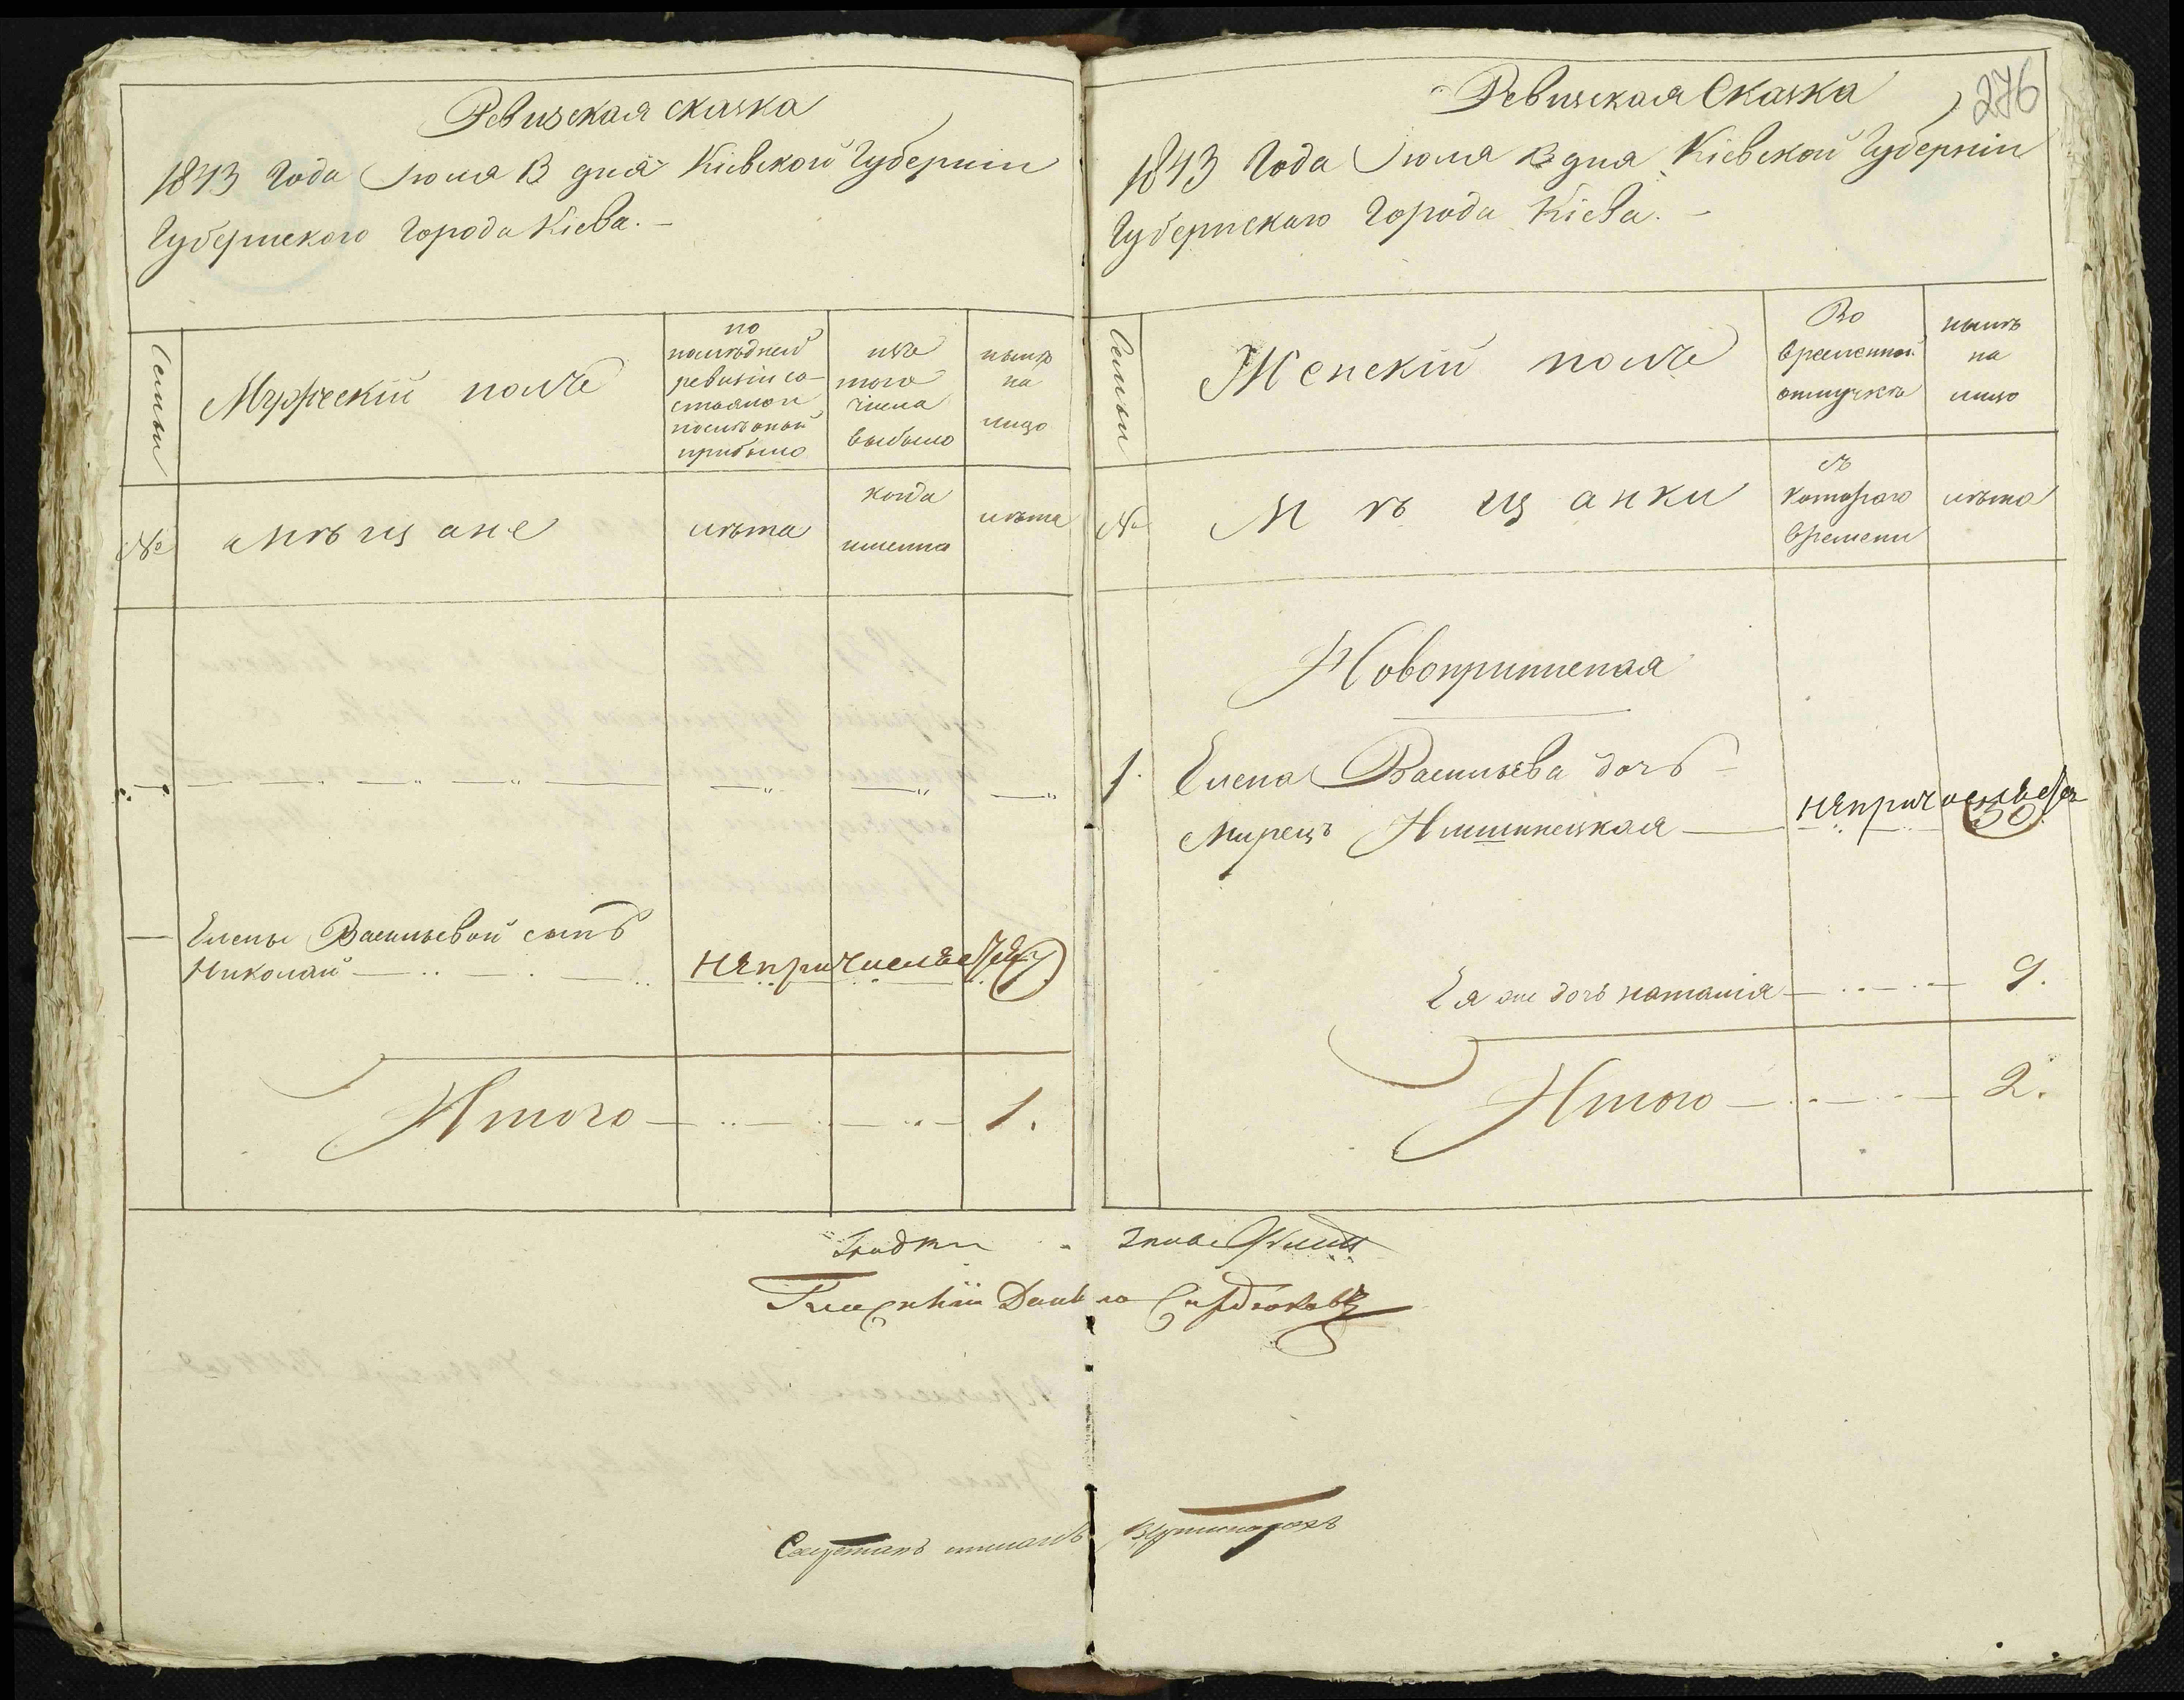 Ревизская сказка
1843 Года Июля 13 дня Кіевской Губерніи
Губернского Города Кіева. –
Семьи
Мужескій полъ
по
последней
ревизіи со-
стояло и
после оной
прибыло
изъ
того
числа
выбыло
ныне
на
лицо
№
мѣщане
лѣта
когда
именно
лѣта
Елены Васильевой сынъ
Николай
непричисляется
7
Итого 1.
276
Ревизская Сказка
1843 Года Июля 13 дня Кіевской Губерніи
Губернскаго Города Кіева. –
Семьи
Женскій полъ
Во
временной
отлучкѣ
нынѣ
на
лицо
№
мѣщанки
съ
котораго
времени
лѣта
Новопришеная
1. Елена Васильева дочь
Мирецъ Нишинецкая
непричисляется
30
Ея же дочь наталія 9.
Итого 2.